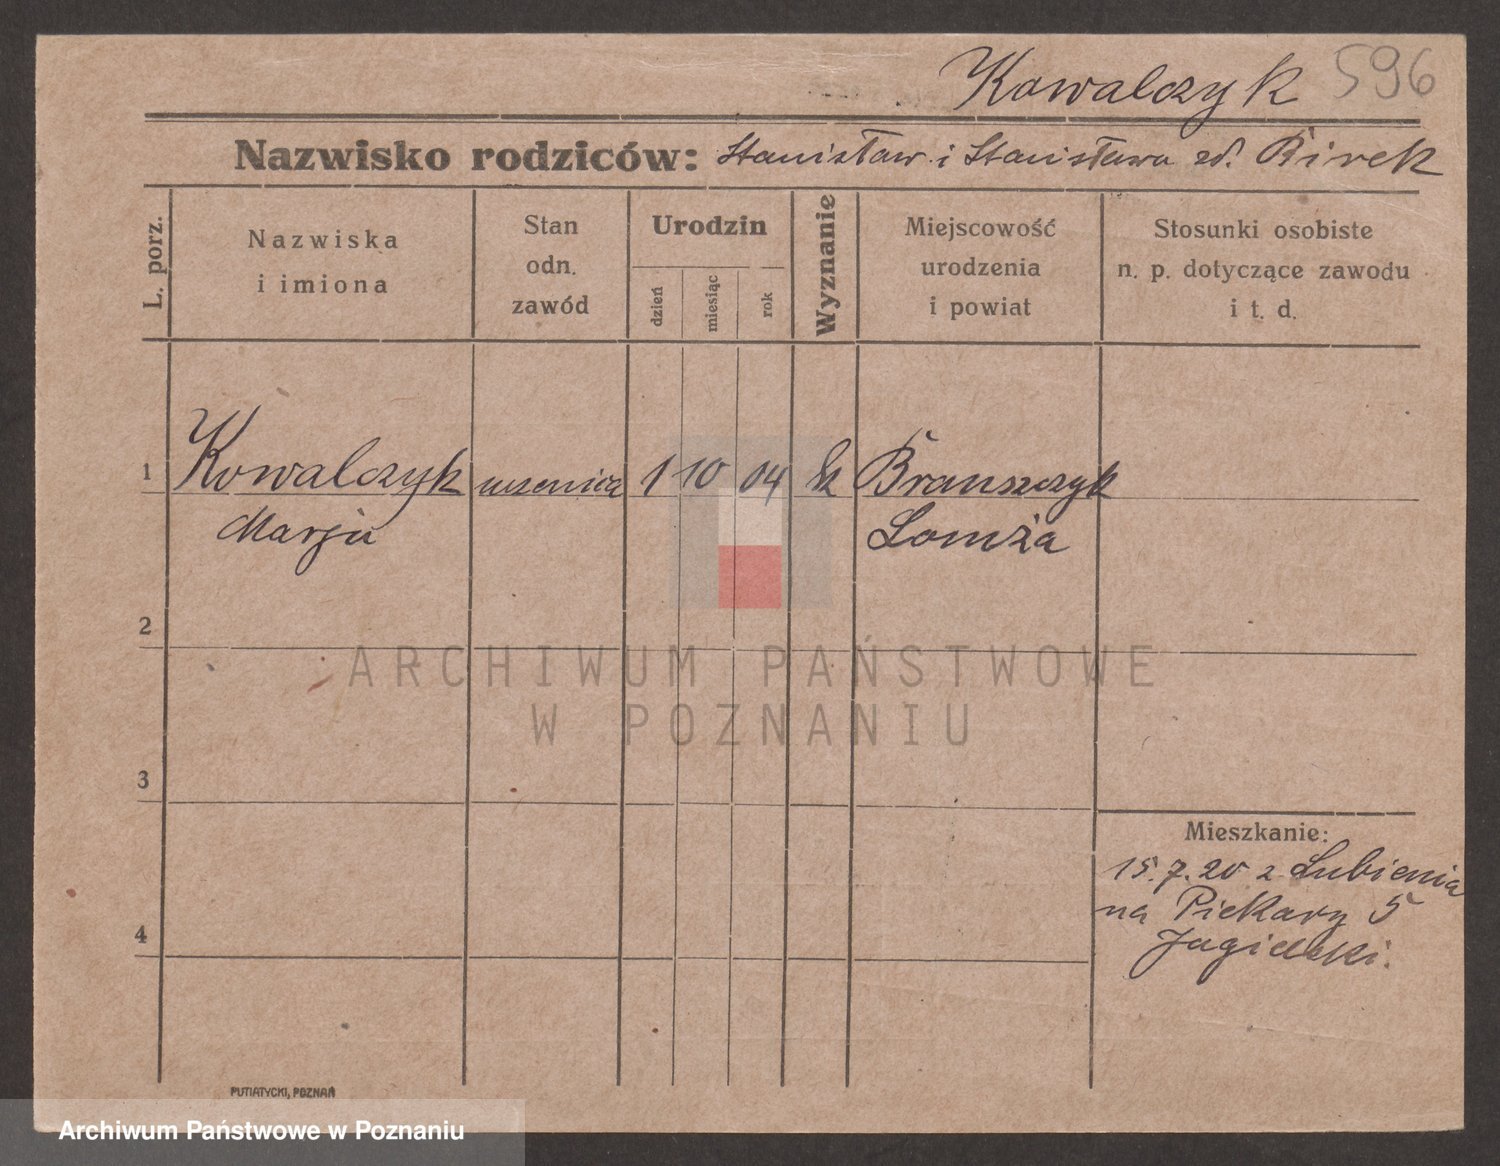 Kowalczyk 596
Nazwisko rodziców: Stanisław i Stanisława zd. Birek
L. porz.
Nazwiska
i imiona
Stan
odn.
zawód
Urodzin
dzień
miesiąc
rok
Wyznanie
Miejscowość
urodzenia
i powiat
Stosunki osobiste
n. p. dotyczące zawodu
i t. d.
1 Kowalczyk uczenica 1 10 04 k Branszczyk
Marja Łomża
2
ARCHIWUM PAŃSTWOWE
W POZNANIU
3
Mieszkanie:
15.7.20 z Lubienia
na Piekary 5
4
Jagielski.
PUTIATYCKI, POZNAŃ
Archiwum Państwowe w Poznaniu